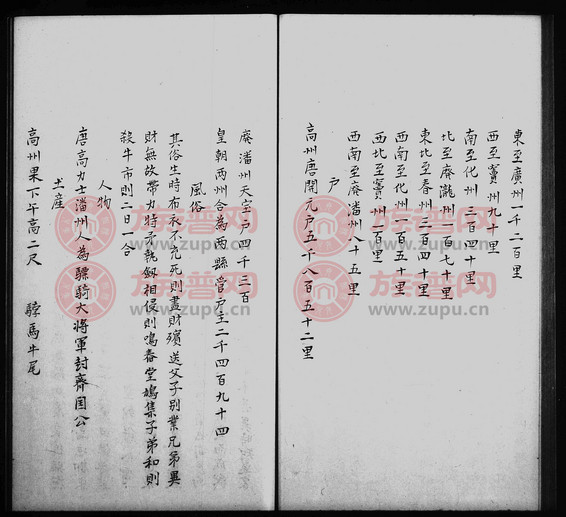 東至廣州一千二百里
西至竇州九十里
南至化州二百四十里
北至廢瀧州一百七十里
東北至春州三百四十里
西南至化州一百五十里
西北至竇州一百里
西南至廢潘州八十五里
戶
高州唐開元戶五千八百五十二里
廢潘州天宝戶四千三百
皇朝兩州合為兩縣管戶主二千四百九十四
風俗
其俗生時布衣不充死則盡財殯送父子別業兄弟異
財無故帶刀持矛執劍相侵則鳴舂堂鳩集子弟和則
殺牛市則二日一合
人物
唐高力士潘州人為驃騎大將軍封齊国公
土産
高州果下牛高二尺 騄馬牛尾
族譜网
www.zupu.cn
族譜网
www.zupu.cn
族譜网
www.zupu.cn
族譜网
www.zupu.cn